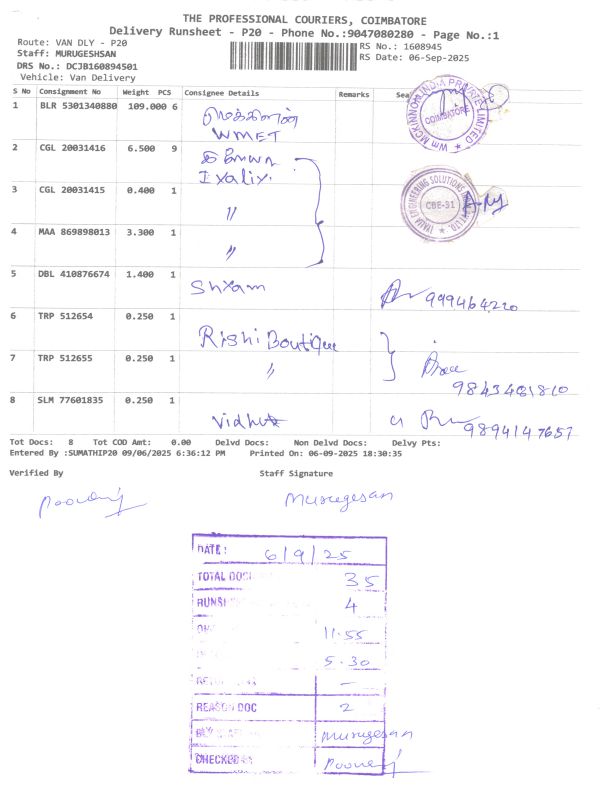 THE PROFESSIONAL COURIERS, COIMBATORE
Delivery Runsheet - P20 - Phone No.:9047080280 - Page No.:1
Route: VAN DLY - P20
Staff: MURUGESHSAN
DRS No.: DCJB160894501
Vehicle: Van Delivery
RS No.: 1608945
RS Date: 06-Sep-2025
S No Consignment No Weight PCS Consignee Details Remarks
1 BLR 5301340880 109.000 6
WMET
Wm MCKINNON INDIA PRIVATE LIMITED
COIMBATORE
2 CGL 20031416 6.500 9
3 CGL 20031415 0.400 1 "
CBE-31
4 MAA 869898013 3.300 1 "
5 DBL 410876674 1.400 1 Shyam
6 TRP 512654 0.250 1 Rishi Boutique
7 TRP 512655 0.250 1 "
8 SLM 77601835 0.250 1
9894147657
Tot Docs: 8 Tot COD Amt: 0.00 Delvd Docs: Non Delvd Docs: Delvy Pts:
Entered By :SUMATHIP20 09/06/2025 6:36:12 PM Printed On: 06-09-2025 18:30:35
Verified By Staff Signature
Murugesan
DATE: 6/9/25
TOTAL 35
4
11.55
5.30
-
REASON DOC 2
Murugesan
CHECKED